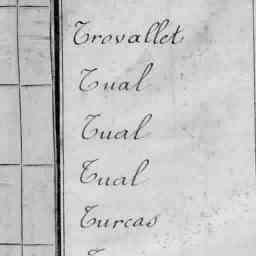 Trovallet
Tual
Tual
Tual
Turcas